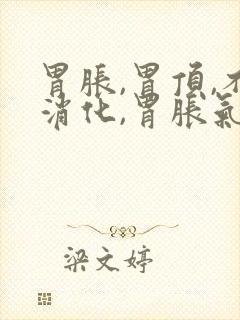 胃脹,胃頂,不
消化,胃脹氣
梁文婷